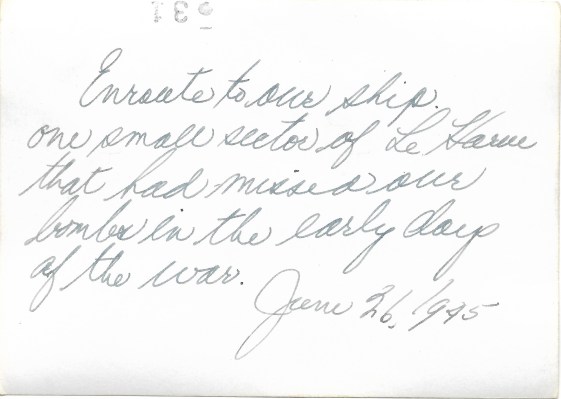 Enroute to our ship.
one small sector of Le Harve
that had missed our
bombs in the early days
of the war.
June 26, 1945